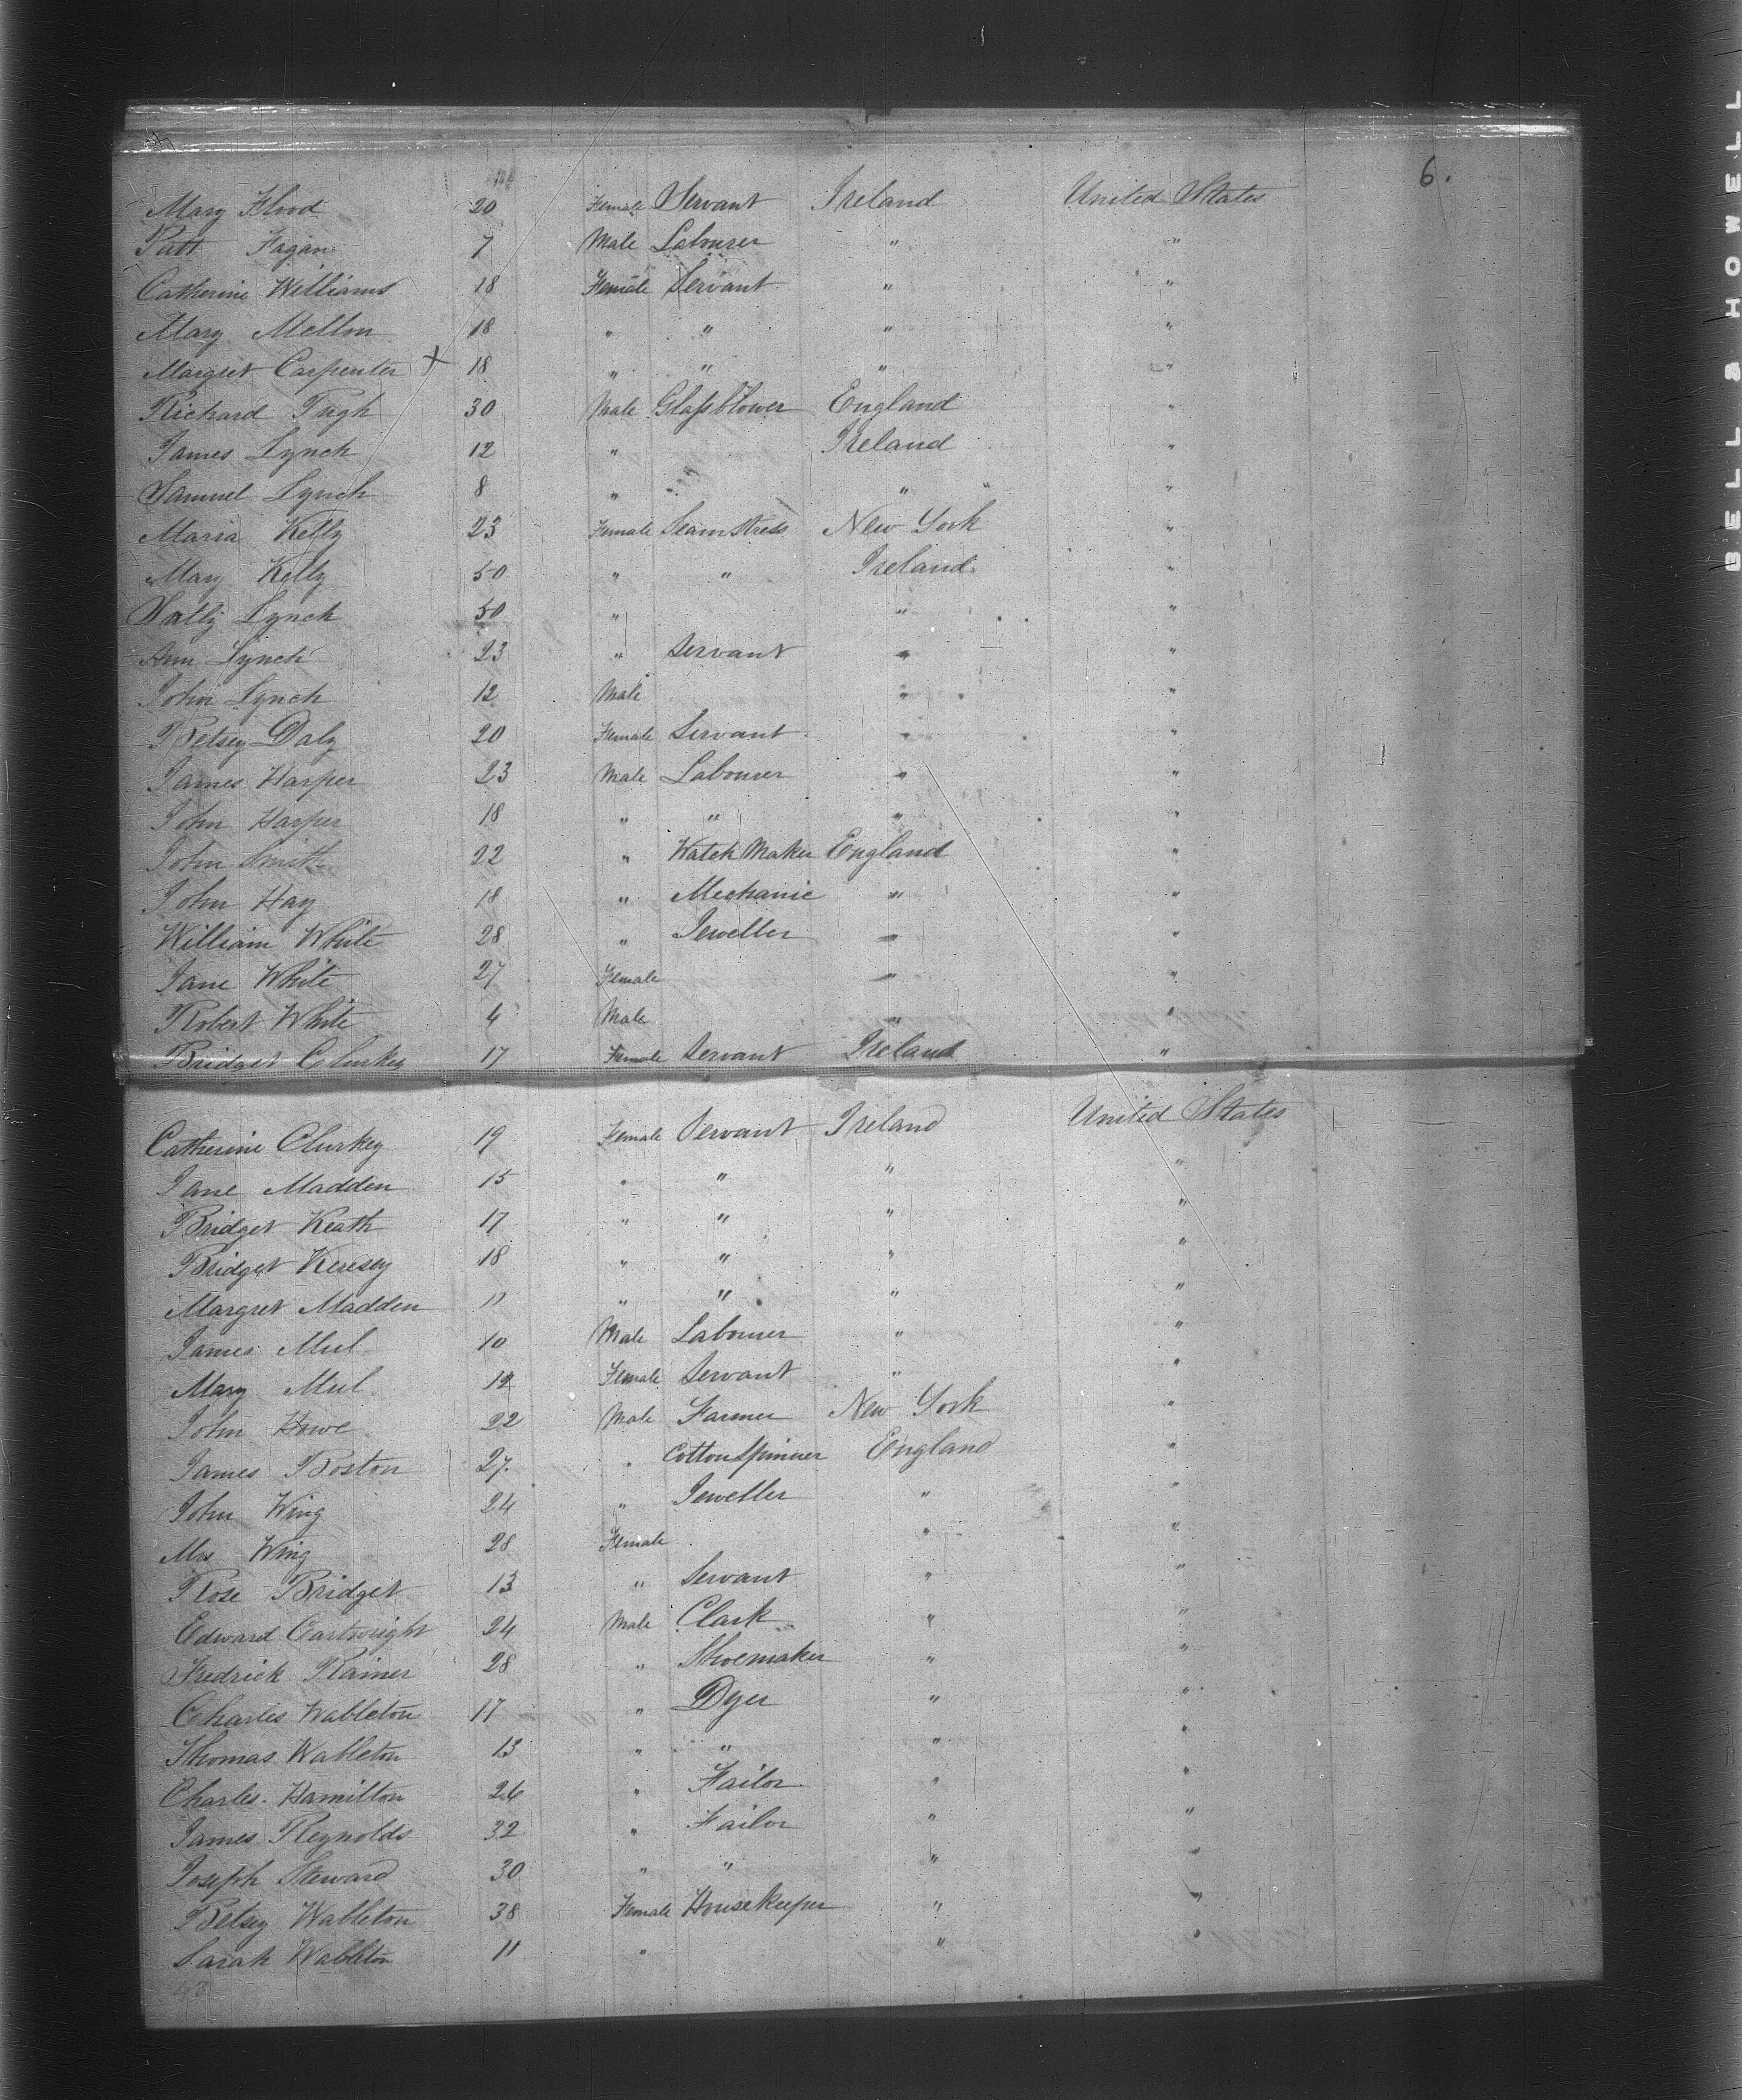 6.
Mary Flood 20 Female Servant Ireland United States
Patt Fagan 7 Male Labourer " "
Catherine Williams 18 Female Servant " "
Mary Mellon 18 " " " "
Margret Carpenter + 18 " " " "
Richard Pugh 30 Male Glassblower England "
James Lynch 12 " Ireland "
Samuel Lynch 8 " " "
Maria Kelly 23 Female Seamstress New York "
Mary Kelly 50 " " Ireland "
Sally Lynch 50 " " "
Ann Lynch 23 " Servant " "
John Lynch 12 Male " "
Betsey Daly 20 Female Servant " "
James Harper 23 Male Labourer " "
John Harper 18 " " " "
John Smith 22 " Watch Maker England "
John Hay 18 " Mechanic " "
William White 28 " Jeweller " "
Jane White 27 Female " "
Robert White 4 Male " "
Bridget Clurkey 17 Female Servant Ireland "
Catherine Clurkey 19 Female Servant Ireland United States
Jane Madden 15 " " " "
Bridget Keath 17 " " " "
Bridget 18 " " " "
Margret Madden 11 " " " "
James 10 Male Labourer " "
Mary 12 Female Servant " "
John Howe 22 Male Farmer New York "
James Boston 27 " Cotton Spinner England "
John Wing 24 " Jeweller " "
Mrs Wing 28 Female " "
Rose Bridget 13 " Servant " "
Edward Cartwright 24 Male Clark " "
Fredrick Rainer 28 " Shoemaker " "
Charles Wableton 17 " Dyer " "
Thomas Wableton 13 " " " "
Charles Hamilton 26 " Tailor " "
James Reynolds 32 " Tailor " "
Joseph Steward 30 " " " "
Betsey Wableton 38 Female Housekeeper " "
Sarah Wableton 11 " " "
43
BELL & HOWELL